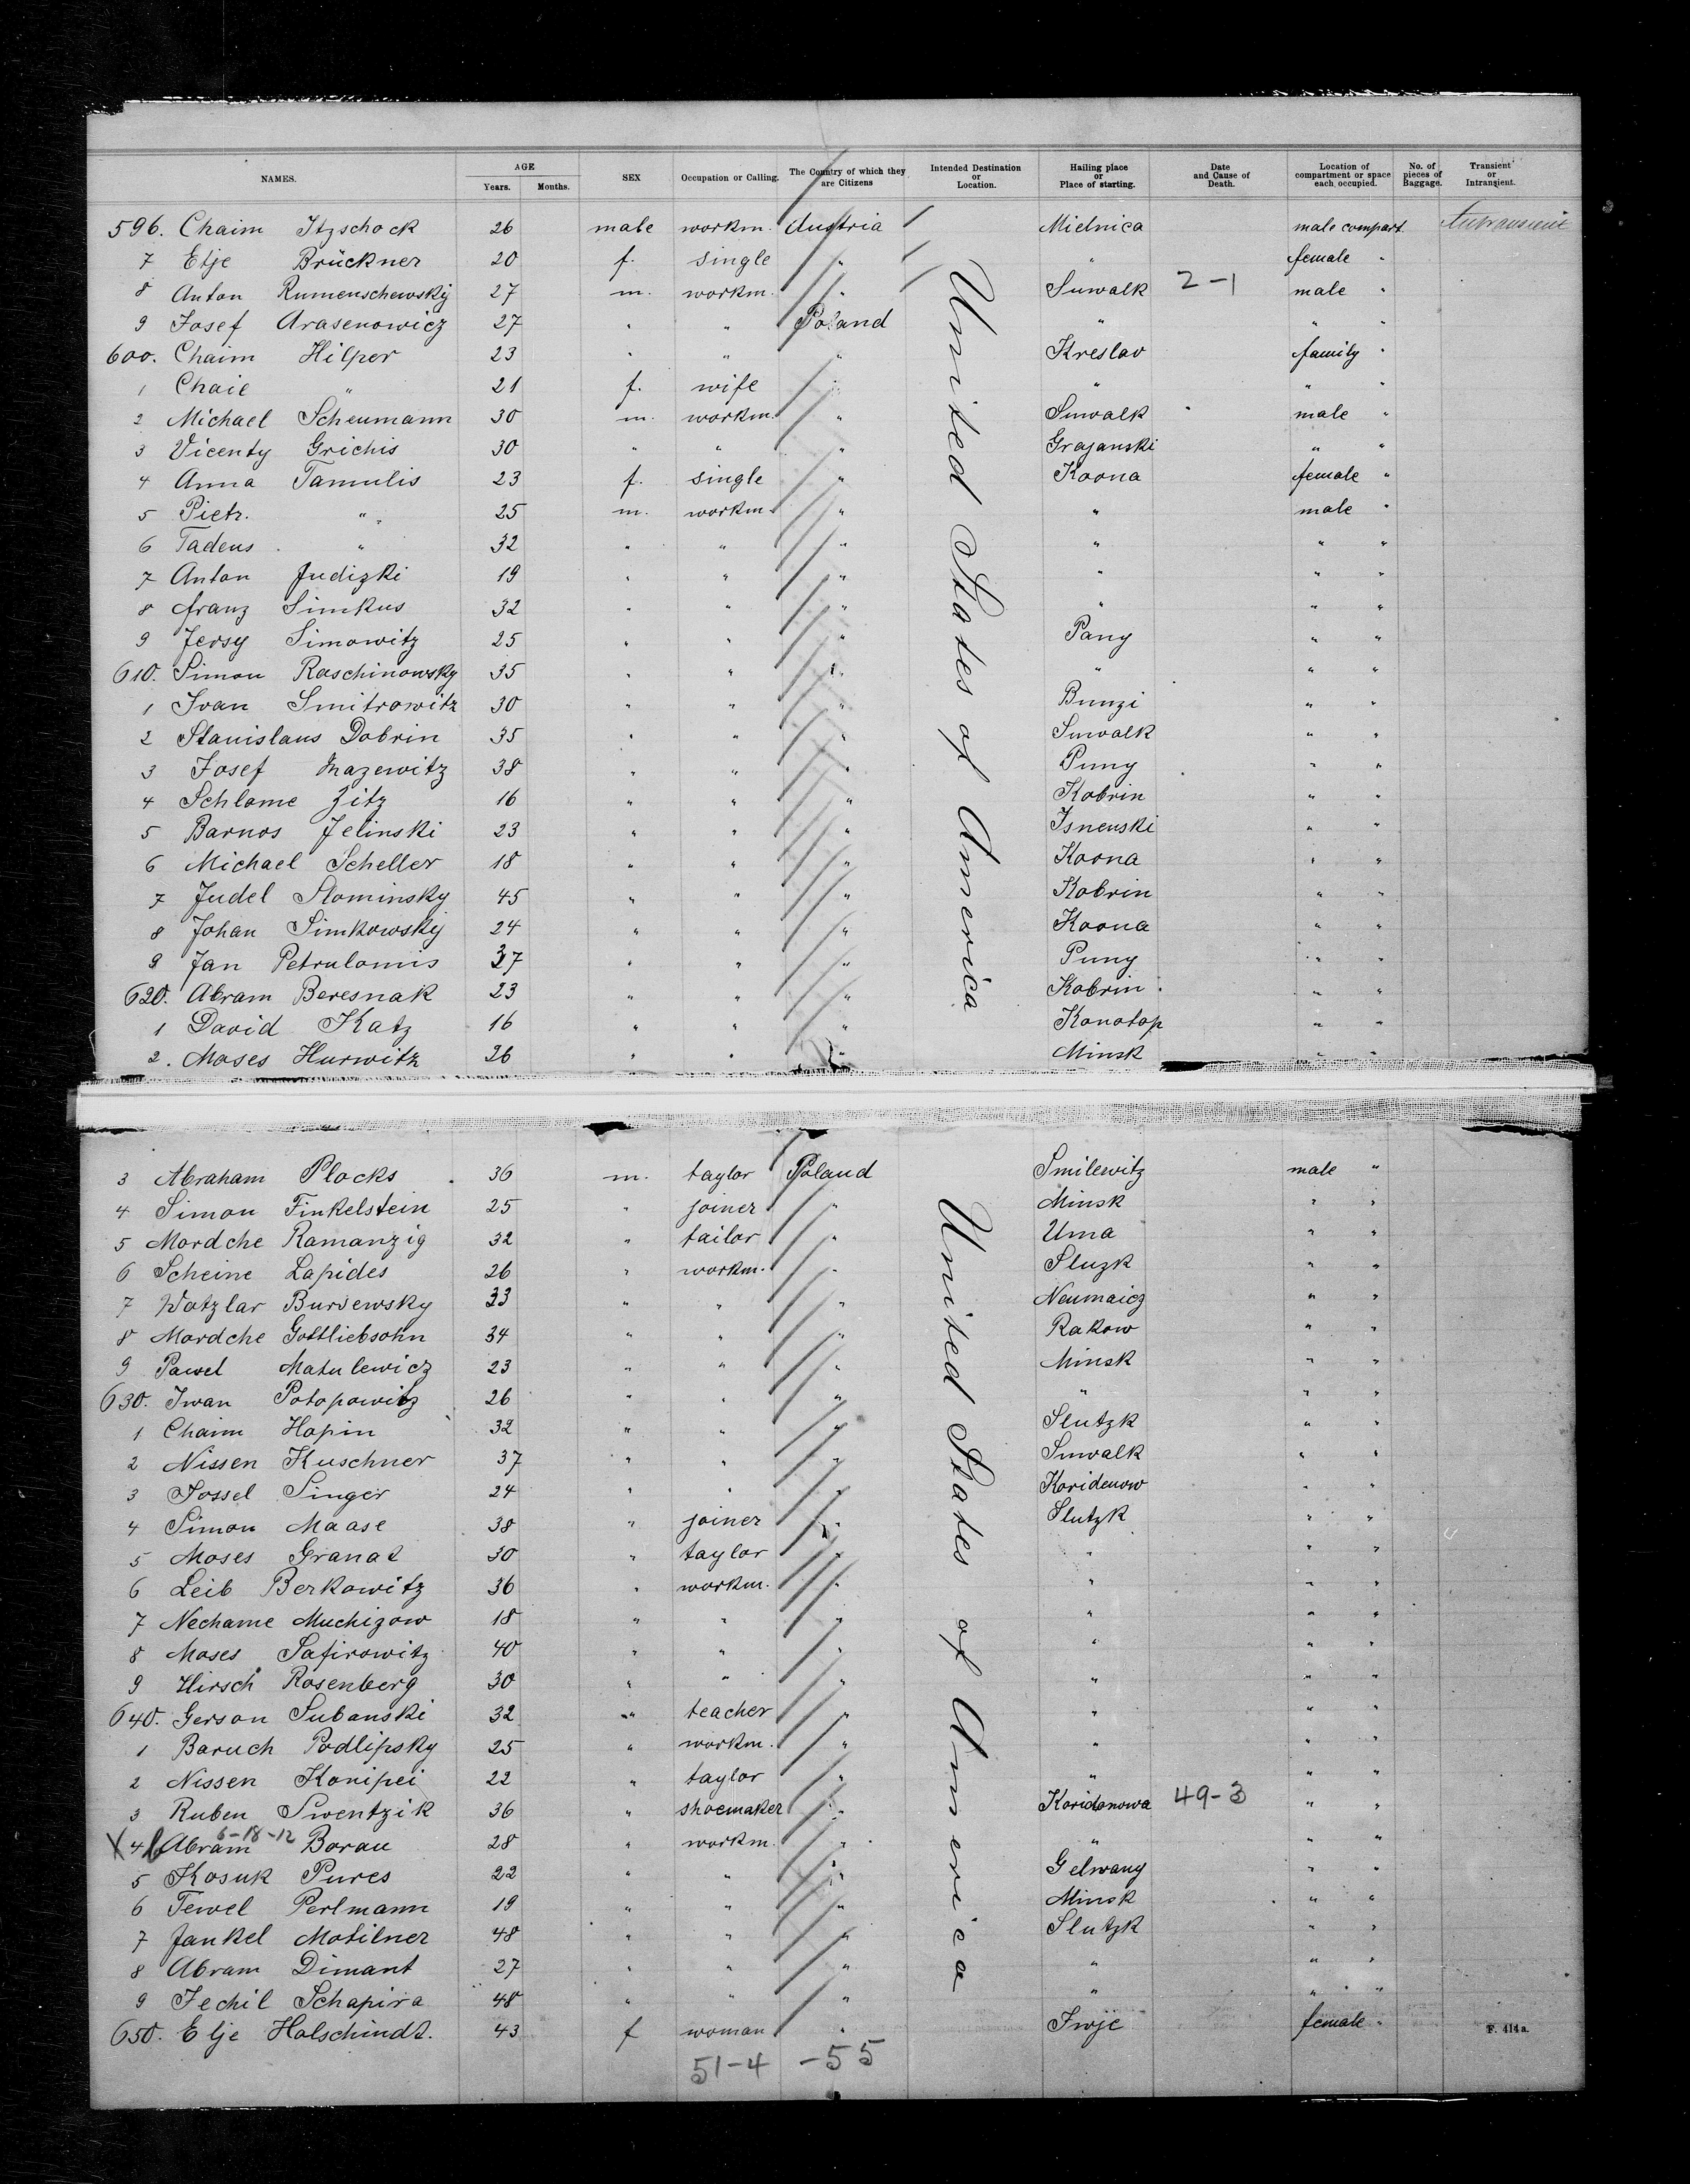 NAMES. AGE Years. Months. SEX Occupation or Calling. The Country of which they are Citizens Intended Destination or Location. Hailing place or Place of starting. Date and Cause of Death. Location of compartment or space each occupied. No. of pieces of Baggage. Transient or Intransient.
596. Chaim Itzschock 26 male workm. Austria / Mielnica male compart.
7 Etje Brückner 20 f. single " / " female "
8 Anton Rumenschewskij 27 m. workm. " / Suwalk 2-1 male "
9 Josef Arasenowicz 27 " " Poland " " "
600. Chaim Hilper 23 " " " Kreslav family "
1 Chaie " 21 f. wife " " " "
2 Michael Scheumann 30 m. workm. " Suwalk male "
3 Vicenty Grichis 30 " " " Grajanski " "
4 Anna Tamulis 23 f. single " Koona female "
5 Pietr. " 25 m. workm. " " male "
6 Tadeus " 32 " " " " " "
7 Anton Judizki 19 " " " " " "
8 Franz Simkus 32 " " " " " "
9 Jersy Simowitz 25 " " " Pany " "
610. Simon Raschinowsky 35 " " " " " "
1 Ivan Smitrowitz 30 " " " Bunzi " "
2 Stanislaus Dobrin 35 " " " Suwalk " "
3 Josef Mazewitz 38 " " " Puny " "
4 Schlome Zitz 16 " " " Kobrin " "
5 Barnos Jelinski 23 " " " Isnenski " "
6 Michael Scheller 18 " " " Koona " "
7 Judel Slominsky 45 " " " Kobrin " "
8 Johan Simkowskij 24 " " " Koona " "
9 Jan Petrulomis 37 " " " Puny " "
620. Abram Beresnak 23 " " " Kobrin " "
1 David Katz 16 " " " Konotop " "
2. Moses Hurwitz 26 " " " Minsk " "
United States of America
3 Abraham Plocks 36 m. taylor Poland Smilewitz male "
4 Simon Finkelstein 25 " joiner " Minsk " "
5 Mordche Ramanzig 32 " tailor " Uma " "
6 Scheine Lapides 26 " workm. " Sluzk " "
7 Watzlar Bursewsky 33 " " " Neumaicz " "
8 Mordche Gottliebsohn 34 " " " Rakow " "
9 Pawel Matulewicz 23 " " " Minsk " "
630. Iwan Potopowitz 26 " " " " " "
1 Chaim Hapin 32 " " " Slutzk " "
2 Nissen Kuschner 37 " " " Suwalk " "
3 Jossel Singer 24 " " " Koridenow " "
4 Simon Maase 38 " joiner " Slutzk " "
5 Moses Granat 30 " taylor " " " "
6 Leib Berkowitz 36 " workm. " " " "
7 Nechame Muchizow 18 " " " " " "
8 Moses Safirowitz 40 " " " " " "
9 Hirsch Rosenberg 30 " " " " " "
640. Gerson Subanski 32 " teacher " " " "
1 Baruch Podlipsky 25 " workm. " " " "
2 Nissen Konipei 22 " taylor " " " "
3 Ruben Swentzik 36 " shoemaker " Koridonowa 49-3 " "
6-18-12
X 4 Abram Borau 28 " workm. " " " "
5 Kosuk Pures 22 " " " Gelwany " "
6 Tewel Perlmann 19 " " " Minsk " "
7 Jankel Motilner 48 " " " Slutzk " "
8 Abram Dimant 27 " " " " " "
9 Jechil Schapira 48 " " " " " "
650. Elje Holschindt. 43 f woman " Iwje female "
United States of America
F. 414a.
51-4 -55